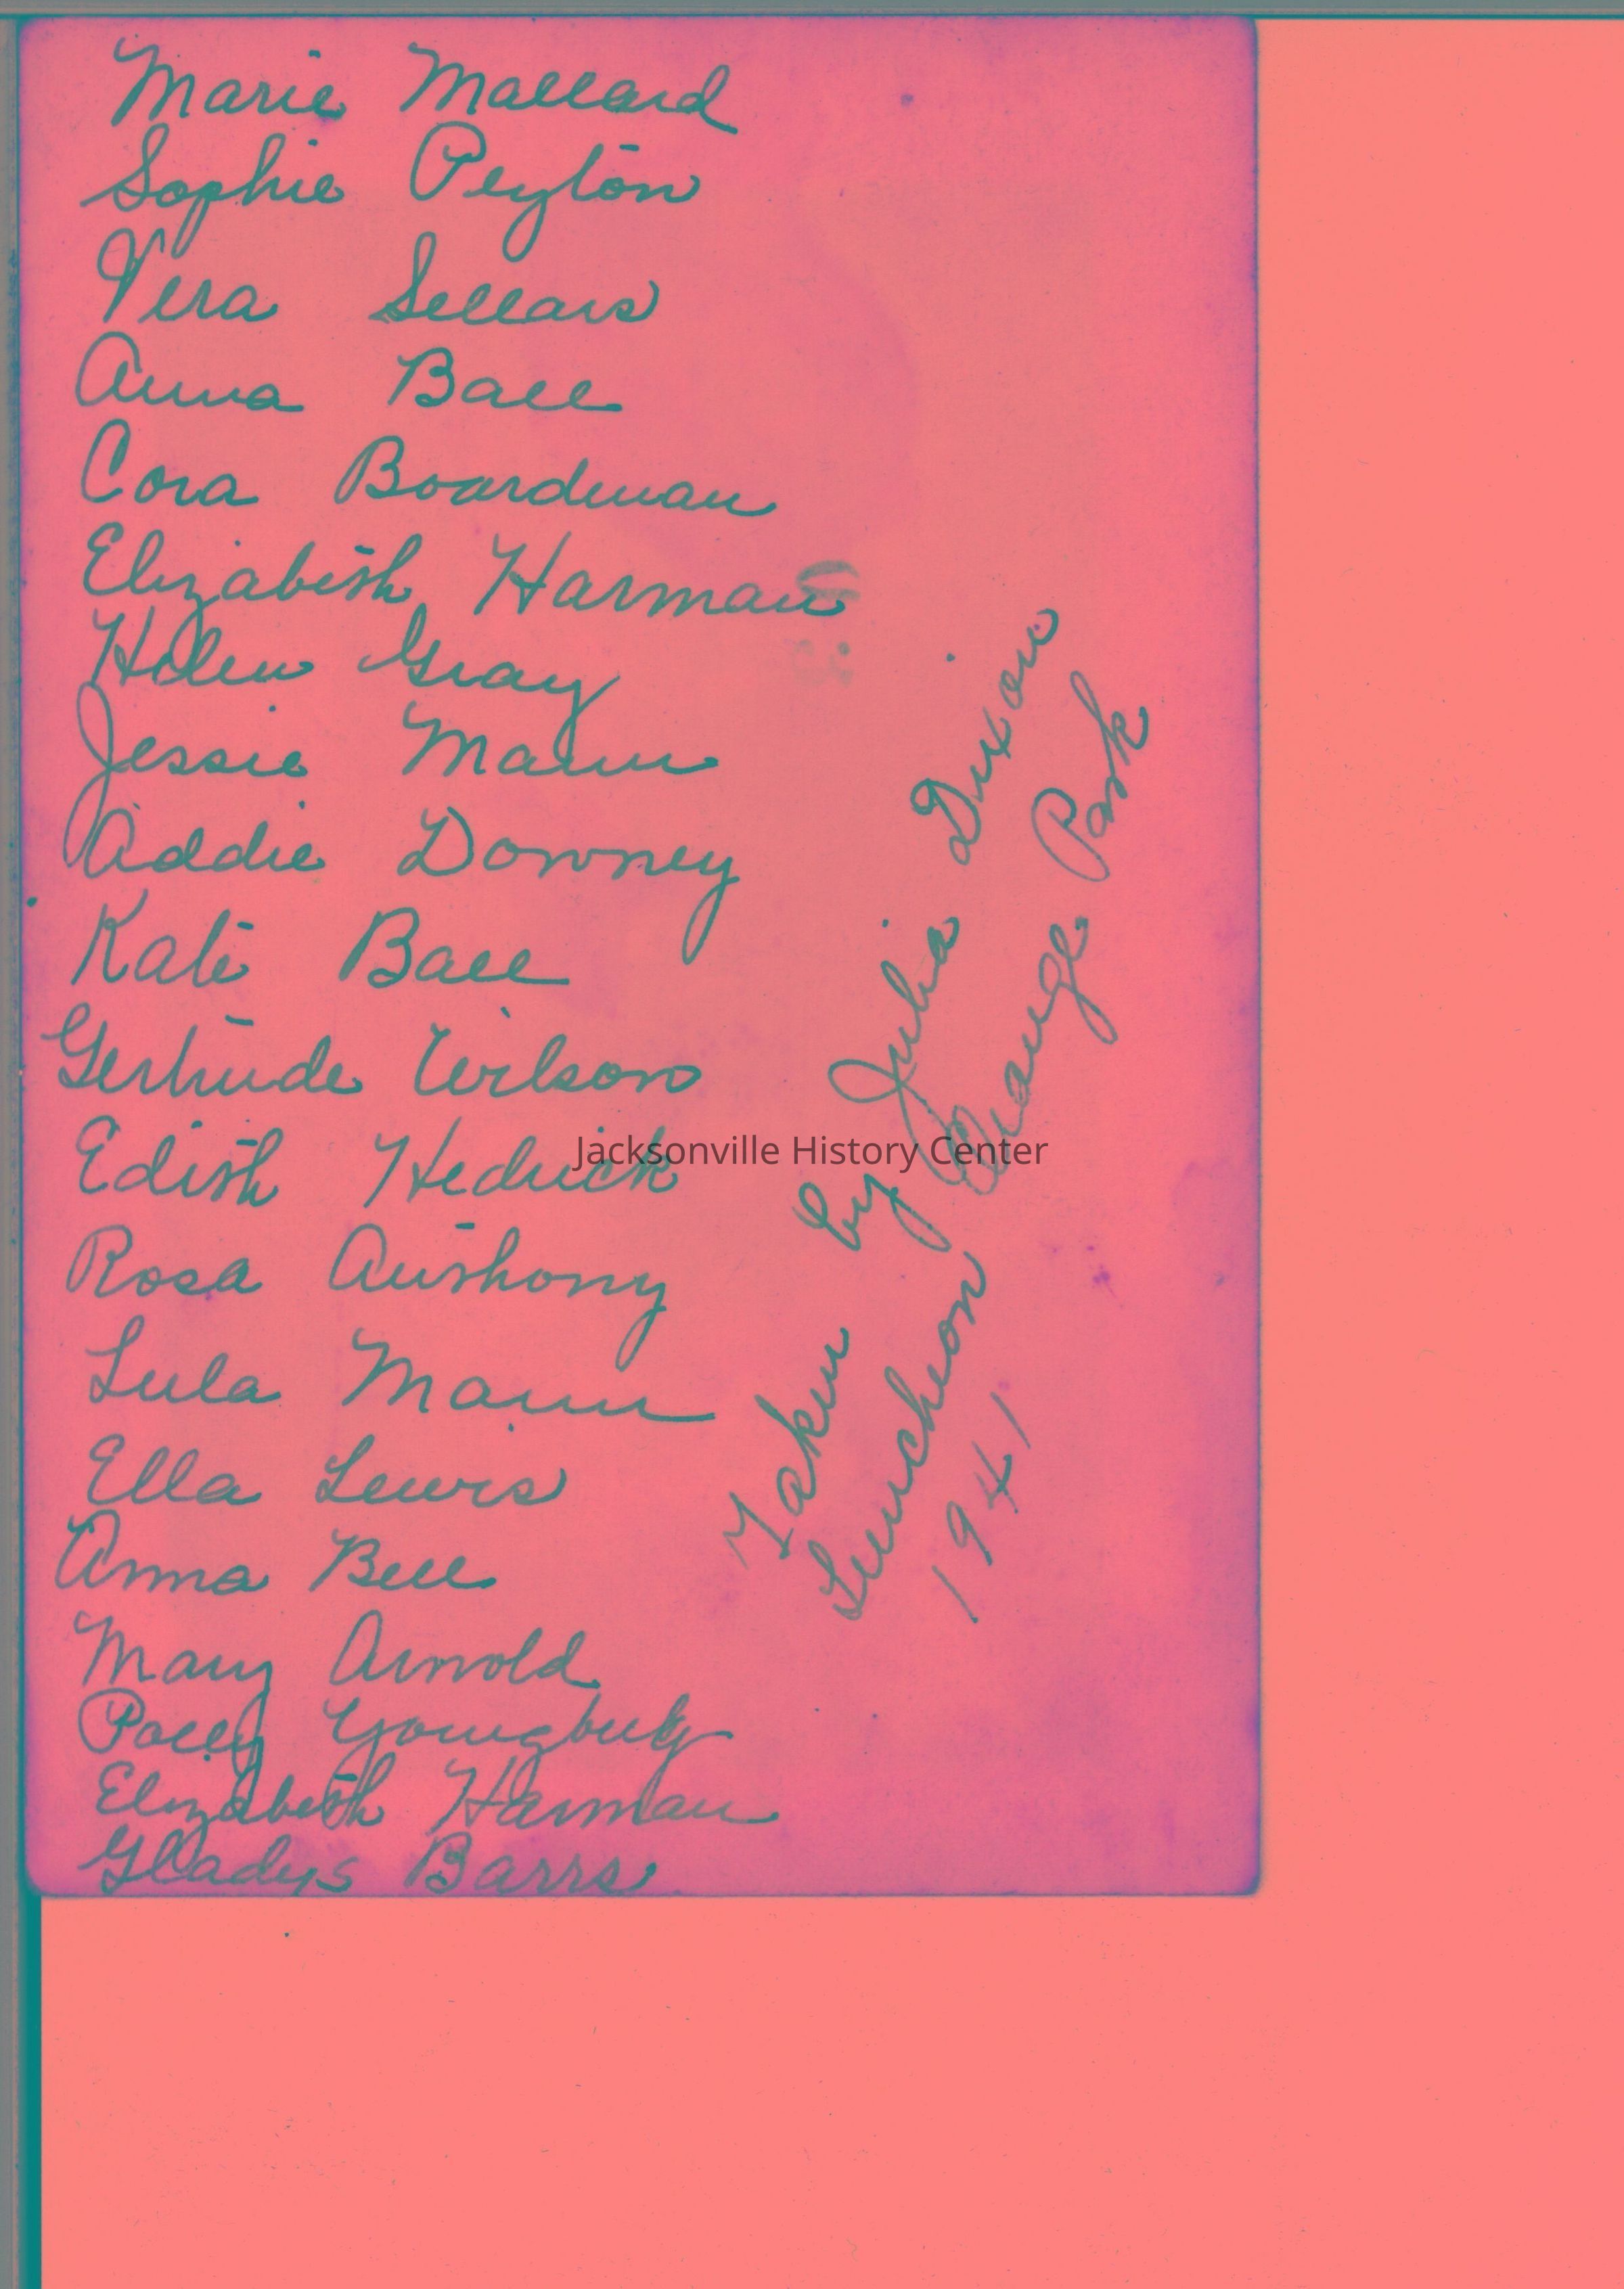 Marie Mallard
Sophie Peyton
Vera Sellars
Anna Ball
Cora Boardman
Elizabeth Harman
Helen Gray
Jessie Mann
Addie Downey
Kate Ball
Gertrude Wilson
Edith Hedrick
Rosa Anthony
Lula Mann
Ella Lewis
Anna Bell
Mary Arnold
Polly
Elizabeth Harman
Gladys Barrs
Taken by Julia Dixon
Luncheon Orange Park
1941
Jacksonville History Center